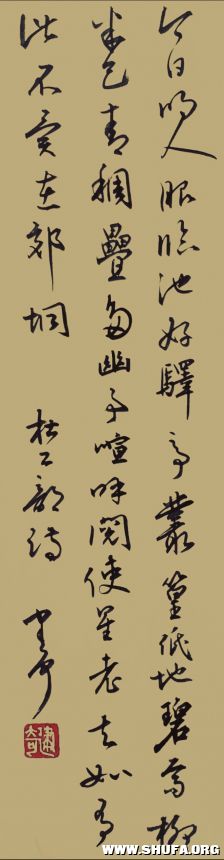 今日明人眼臨池好驛亭叢篁低地碧高柳
半天青稠疊多幽事喧呼閱使星老夫如有
此不異在郊坰
杜工部詩
WWW.SHUFA.ORG